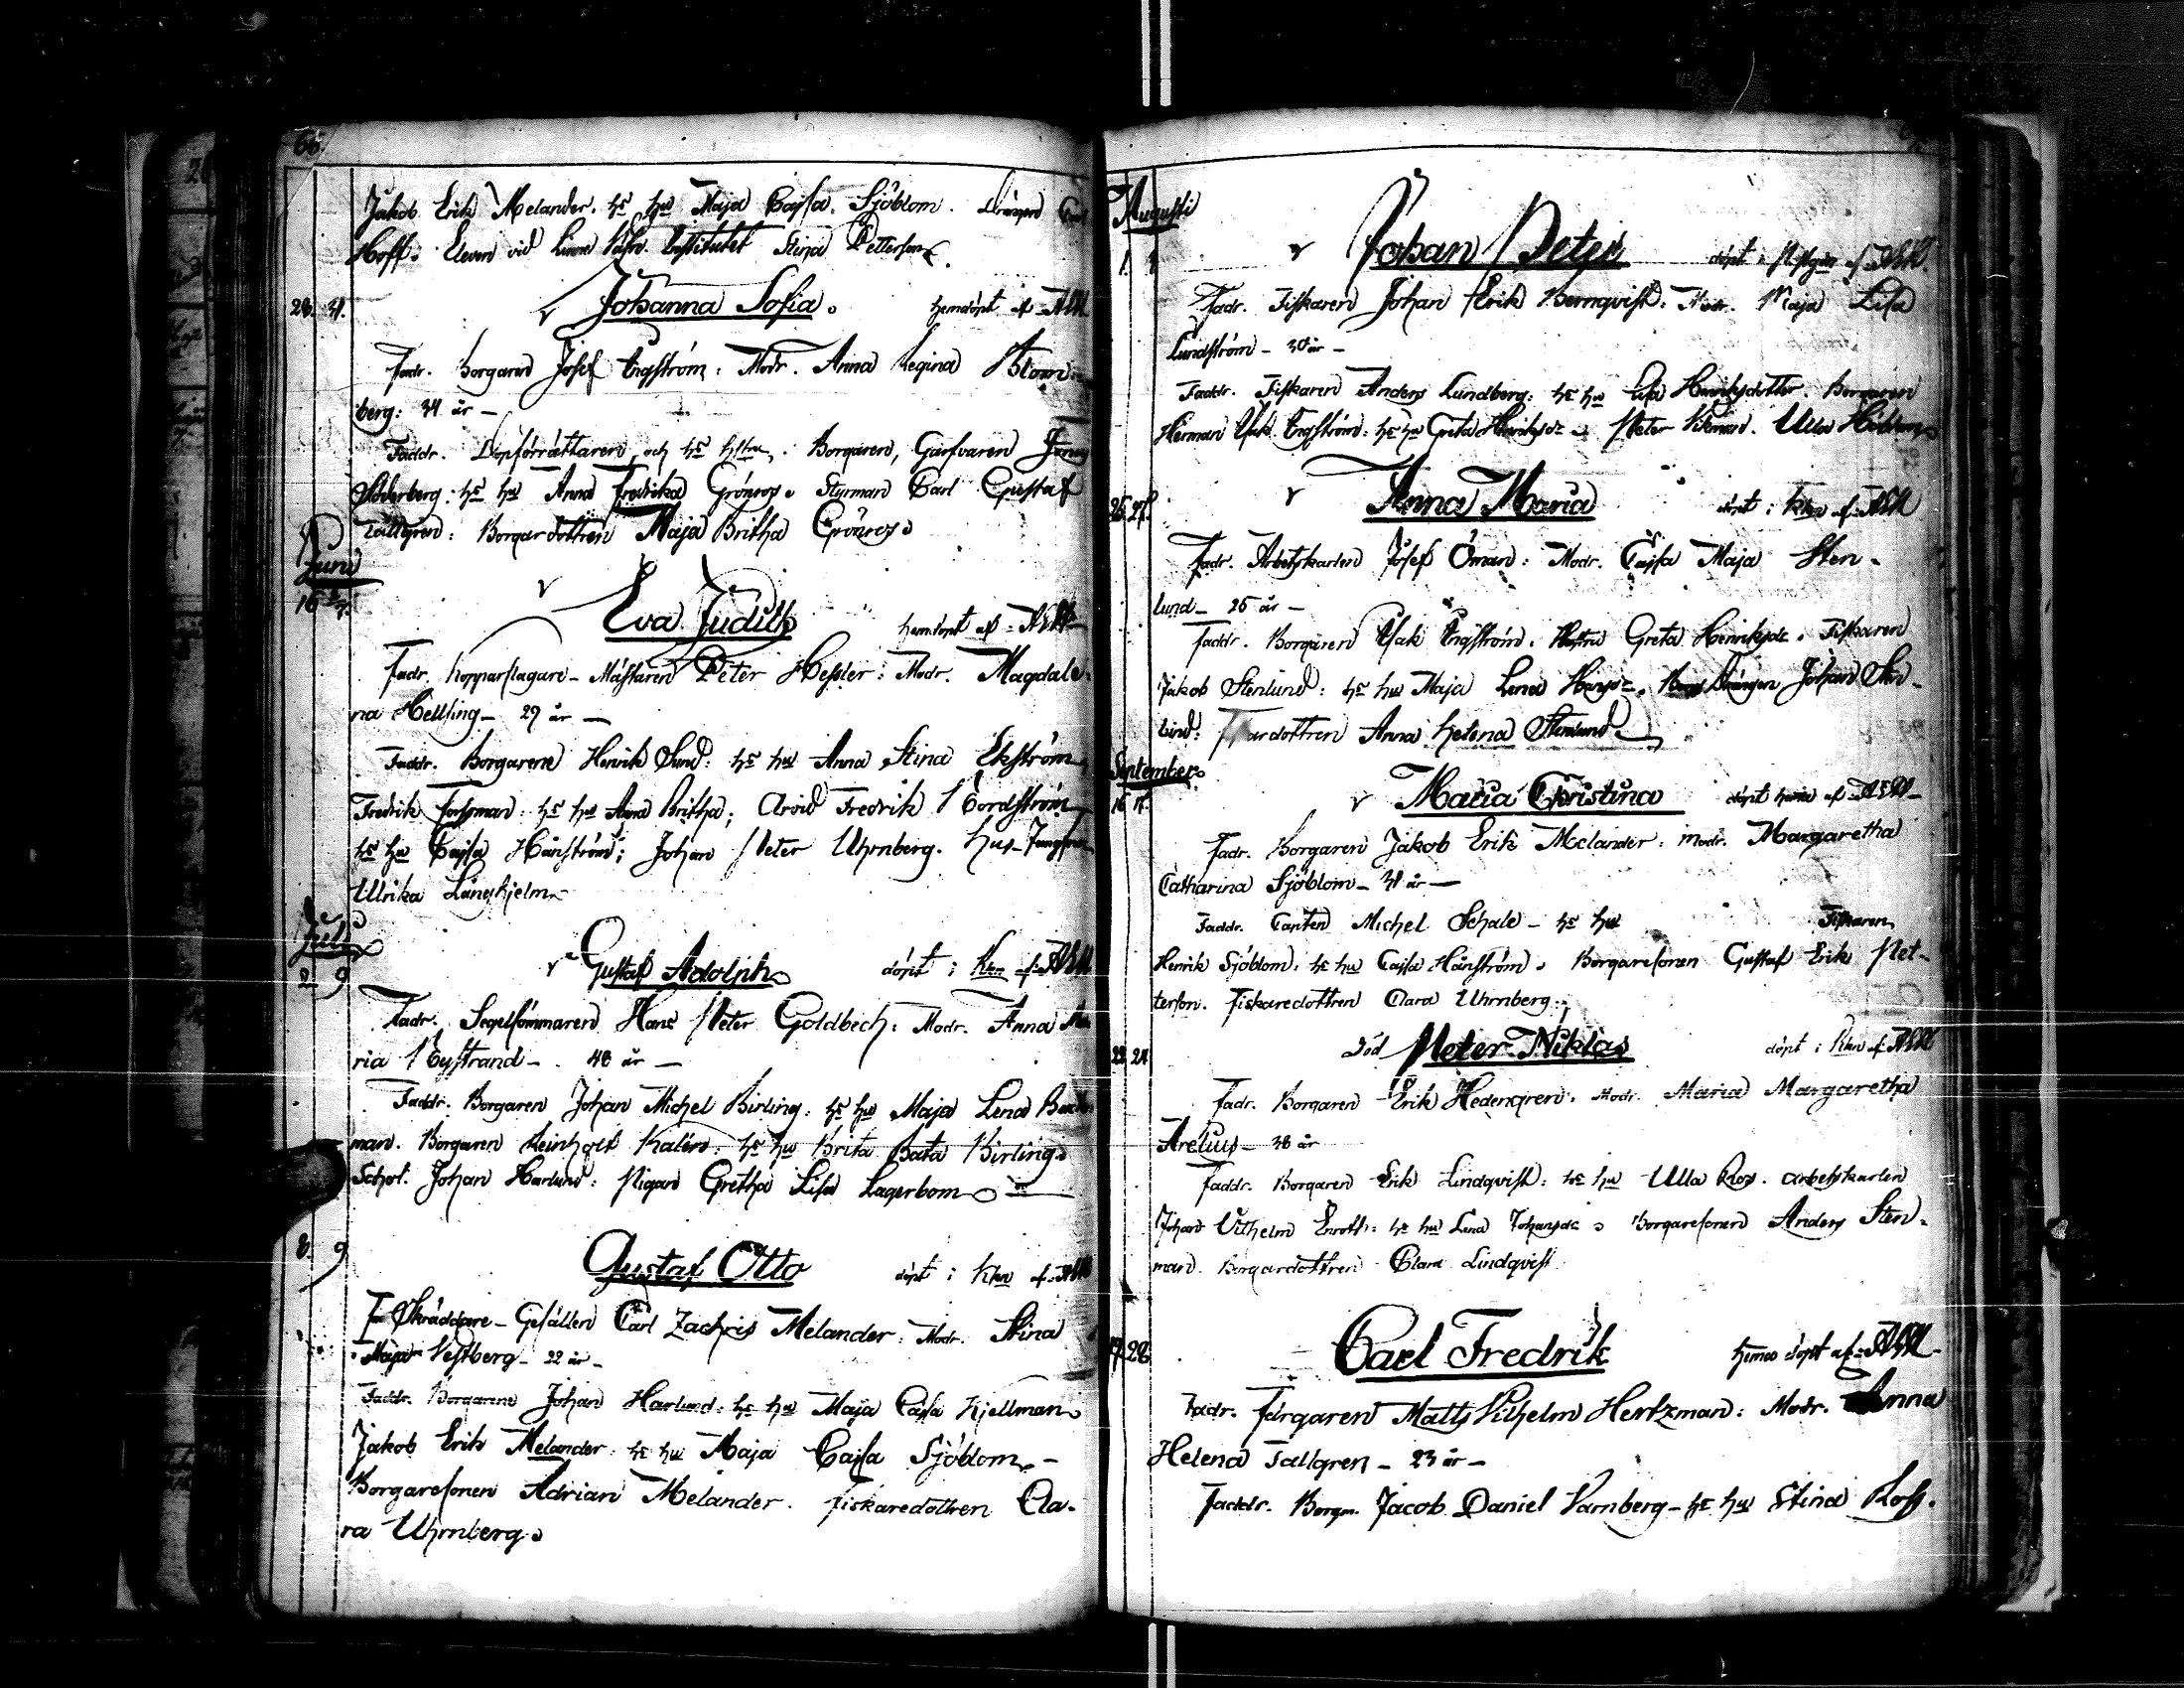 66.
Jakob Erik Melander. hs hu Maja Cajsa Sjöblom. Drängen Carl
Hoff. Eleven vid Institutet Stina Petterson.
28. 31. Johanna Sofia. hemdöpt af AEM
Fadr. Borgaren Josef Engström: Modr. Anna Regina Blom-
berg: 34 år —
Faddr. Dopförrättaren och hs hstru. Borgaren, Garfvaren
Söderberg: hs hu Anna Fredrika Grönros. Styrman Carl Gustaf
Tallgren: Borgardottren Maja Britha Grönros.
Juni
16 Eva Judith hemdöpt af AEM
Fadr. Kopparslagare-Mästaren Peter Hessler: Modr. Magdale-
na Hellsing — 29 år —
Faddr. Borgarene Henrik Sund: hs hu Anna Stina Ekström,
Fredrik Forssman: hs hu Anna Britha; Arvid Fredrik Nordström
hs hu Cajsa Hänström; Johan Peter Uhrnberg. Hus-Jungfrun
Ulrika Långhjelm
Juli
2 9 Gustaf Adolph döpt i Kkn af AEM
Fadr. Segelsömmaren Hans Peter Goldbech: Modr. Anna Ma
ria Nystrand — 48 år —
Faddr. Borgaren Johan Michel Birling: hs hu Maja Lena
man. Borgaren Reinholt Kalén: hs hu Brita Bata Birling.
Schol. Johan Harlund: Pigan Gretha Lisa Lagerbom
8. 9 Gustaf Otto döpt i Kkn af AEM
Skräddare-Gesällen Carl Zachris Melander: Modr. Stina
Maja Vestberg — 22 år —
Faddr. Borgarene Johan Harlund: hs hu Maja Cajsa Kjellman
Jakob Erik Melander: hs hu Maja Cajsa Sjöblom —
Borgaresonen Adrian Melander. Fiskaredottren Cla-
ra Uhrnberg.
Augusti
1. Johan Peter döpt i af AEM.
Fadr. Fiskaren Johan Erik Bernqvist: Modr. Maja Lisa
Lundström — 30 år —
Faddr. Fiskaren Anders Lundberg: hs hu Lisa Henriksdotter. Borgaren
Herman Isak Engström: hs hu Greta Henriksdr. Peter Ulla
26. 27. Anna Maria döpt i Kkn af AEM
Fadr. Arbetskarlen Josef Öman: Modr. Cajsa Maja Sten-
lund — 25 år —
Faddr. Borgaren Isak Engström. Hustru Greta Henriksdr. Fiskaren
Jakob Stenlund: hs hu Maja Lena Drängen Johan Sten-
lund: Anna Helena Stenlund
September
16 17. Maria Christina döpt hema af AEM
Fadr. Borgaren Jakob Erik Melander: Modr. Margaretha
Catharina Sjöblom — 31 år —
Faddr. Capten Michel Schale — hs hu Fiskaren
Henrik Sjöblom: hs hu Cajsa Hänström. Borgaresonen Gustaf Erik Pet-
terson. Fiskaredottren Clara Uhrnberg.
22. 24. Död Peter Niklas döpt i Kkn af AEM
Fadr. Borgaren Erik Hedengren: Modr. Maria Margaretha
Arelius — 38 år
Faddr. Borgaren Erik Lindqvist: hs hu Ulla Ros. Arbetskarlen
Johan Vilhelm Enroth: hs hu Lena Johansdr. Borgaresonen Anders Sten-
man. Borgardottren Clara Lindqvist
28 Carl Fredrik hema döpt af AEM
Fadr. Färgaren Matts Vilhelm Hertzman: Modr. Anna
Helena Tallgren — 23 år —
Faddr. Borgm. Jacob Daniel Varnberg — hs hu Stina Ross.